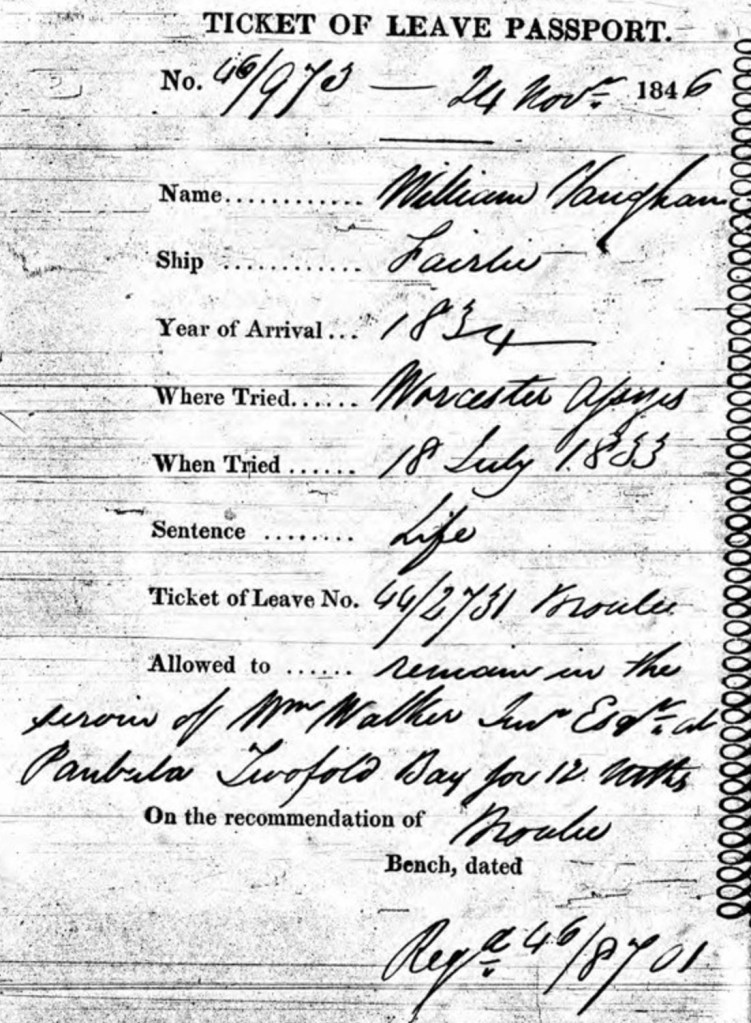 TICKET OF LEAVE PASSPORT.
No. 46/973 — 24 Novr. 1846
Name............ William Vaughan
Ship ............ Fairlie
Year of Arrival... 1834
Where Tried...... Worcester Assizes
When Tried ...... 18 July 1833
Sentence ........ Life
Ticket of Leave No. 44/2731 Broulee
Allowed to ...... remain in the
service of Wm Walker Junr Esqr. at
Panbula Twofold Bay for 12 mths
On the recommendation of Broulee
Bench, dated
Regd. 46/8701